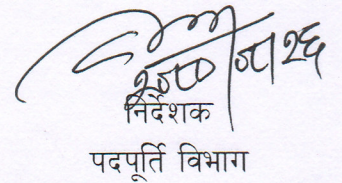 निर्देशक
पदपूर्ति विभाग